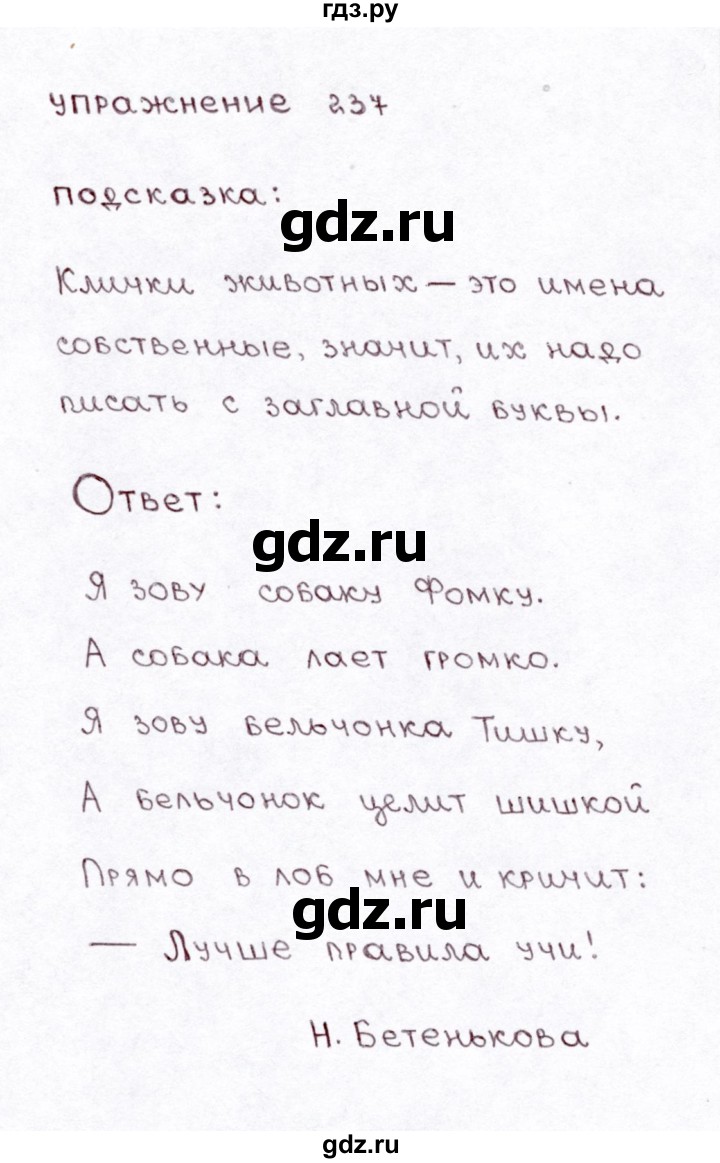 гдз.ру
упражнение 237
подсказка:
gdz.ru
Клички животных — это имена
собственные, значит, их надо
писать с заглавной буквы.
Ответ:
gdz.ru
Я зову собаку Фомку.
А собака лает громко.
Я зову бельчонка Тишку,
А бельчонок целит шишкой
Прямо в лоб мне и кричит:
gdz.ru
— Лучше правила учи!
Н. Бетенькова
gdz.ru